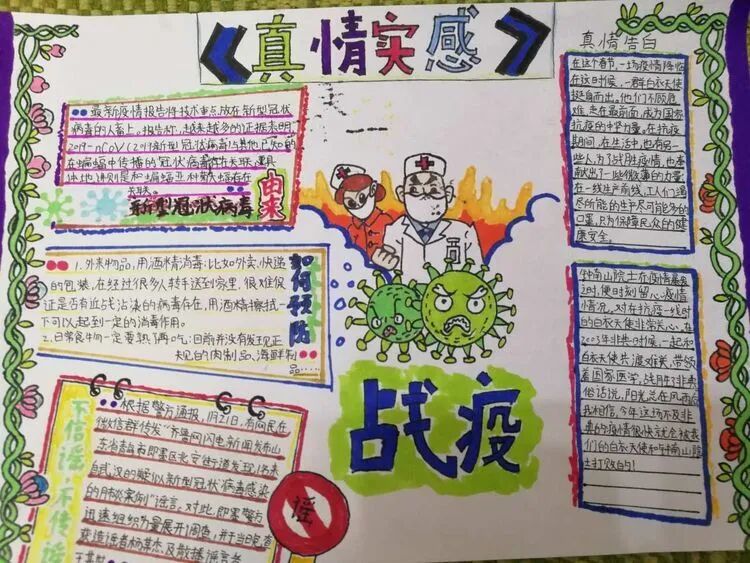 《真情实感》
最新疫情报告将技术重点放在新型冠状
病毒的人畜上,报告称,越来越多的证据表明
2019-nCoV(2019新型冠状病毒)与其他已知的
在蝙蝠中传播的冠状病毒有关联,具
体地讲则是和蝙蝠亚科菊头蝠存在
关联。
新型冠状病毒
由来
如何预防
1.外来物品,用酒精消毒:比如外卖,快递
的包装,在经过很多人转手送到家里,很难保
证是否有近战沾染的病毒存在,用酒精擦拭一
下可以起到一定的消毒作用。
2.日常食物一定要热俩吃:目前并没有发现正
规的肉制品、海鲜制
品……
不信谣,不传谣
根据警方通报,1月21日,有网民在
微信群传发“齐鲁网闪电新闻发布山
东省青岛市即墨区长安街道发现1名来
自武汉的疑似新型冠状病毒感染
的肺炎案例”谣言。对此,即墨警方
迅速组织力量展开调查,并于当日晚查
获造谣者杨某杰及散播谣言者
谣
战疫
真情告白
在这个春节,一场疫情降临
在这时候,一群白衣天使
挺身而出,他们不顾危
难,走在最前面,成为国家
抗疫的中坚力量,在抗疫
期间,在生活中,也有另一
些人,为了战胜疫情,也奉
献出了一些微薄的力量
在一线生产前线,工人们竭
尽所能的生产尽可能多的
口罩,只为保障民众的健
康安全。
钟南山院士在疫情蔓延
之时,便时刻留心疫情
情况,对在抗击一线时
的白衣天使非常关心,在
2003年非典时候,一起和
白衣天使共渡难关,带领
着国家医学,战胜了非典
俗话说,阳光总在风雨后
我相信,今年这场不及非
典的疫情很快就会被我
们的白衣天使和钟南山院
士打败的!